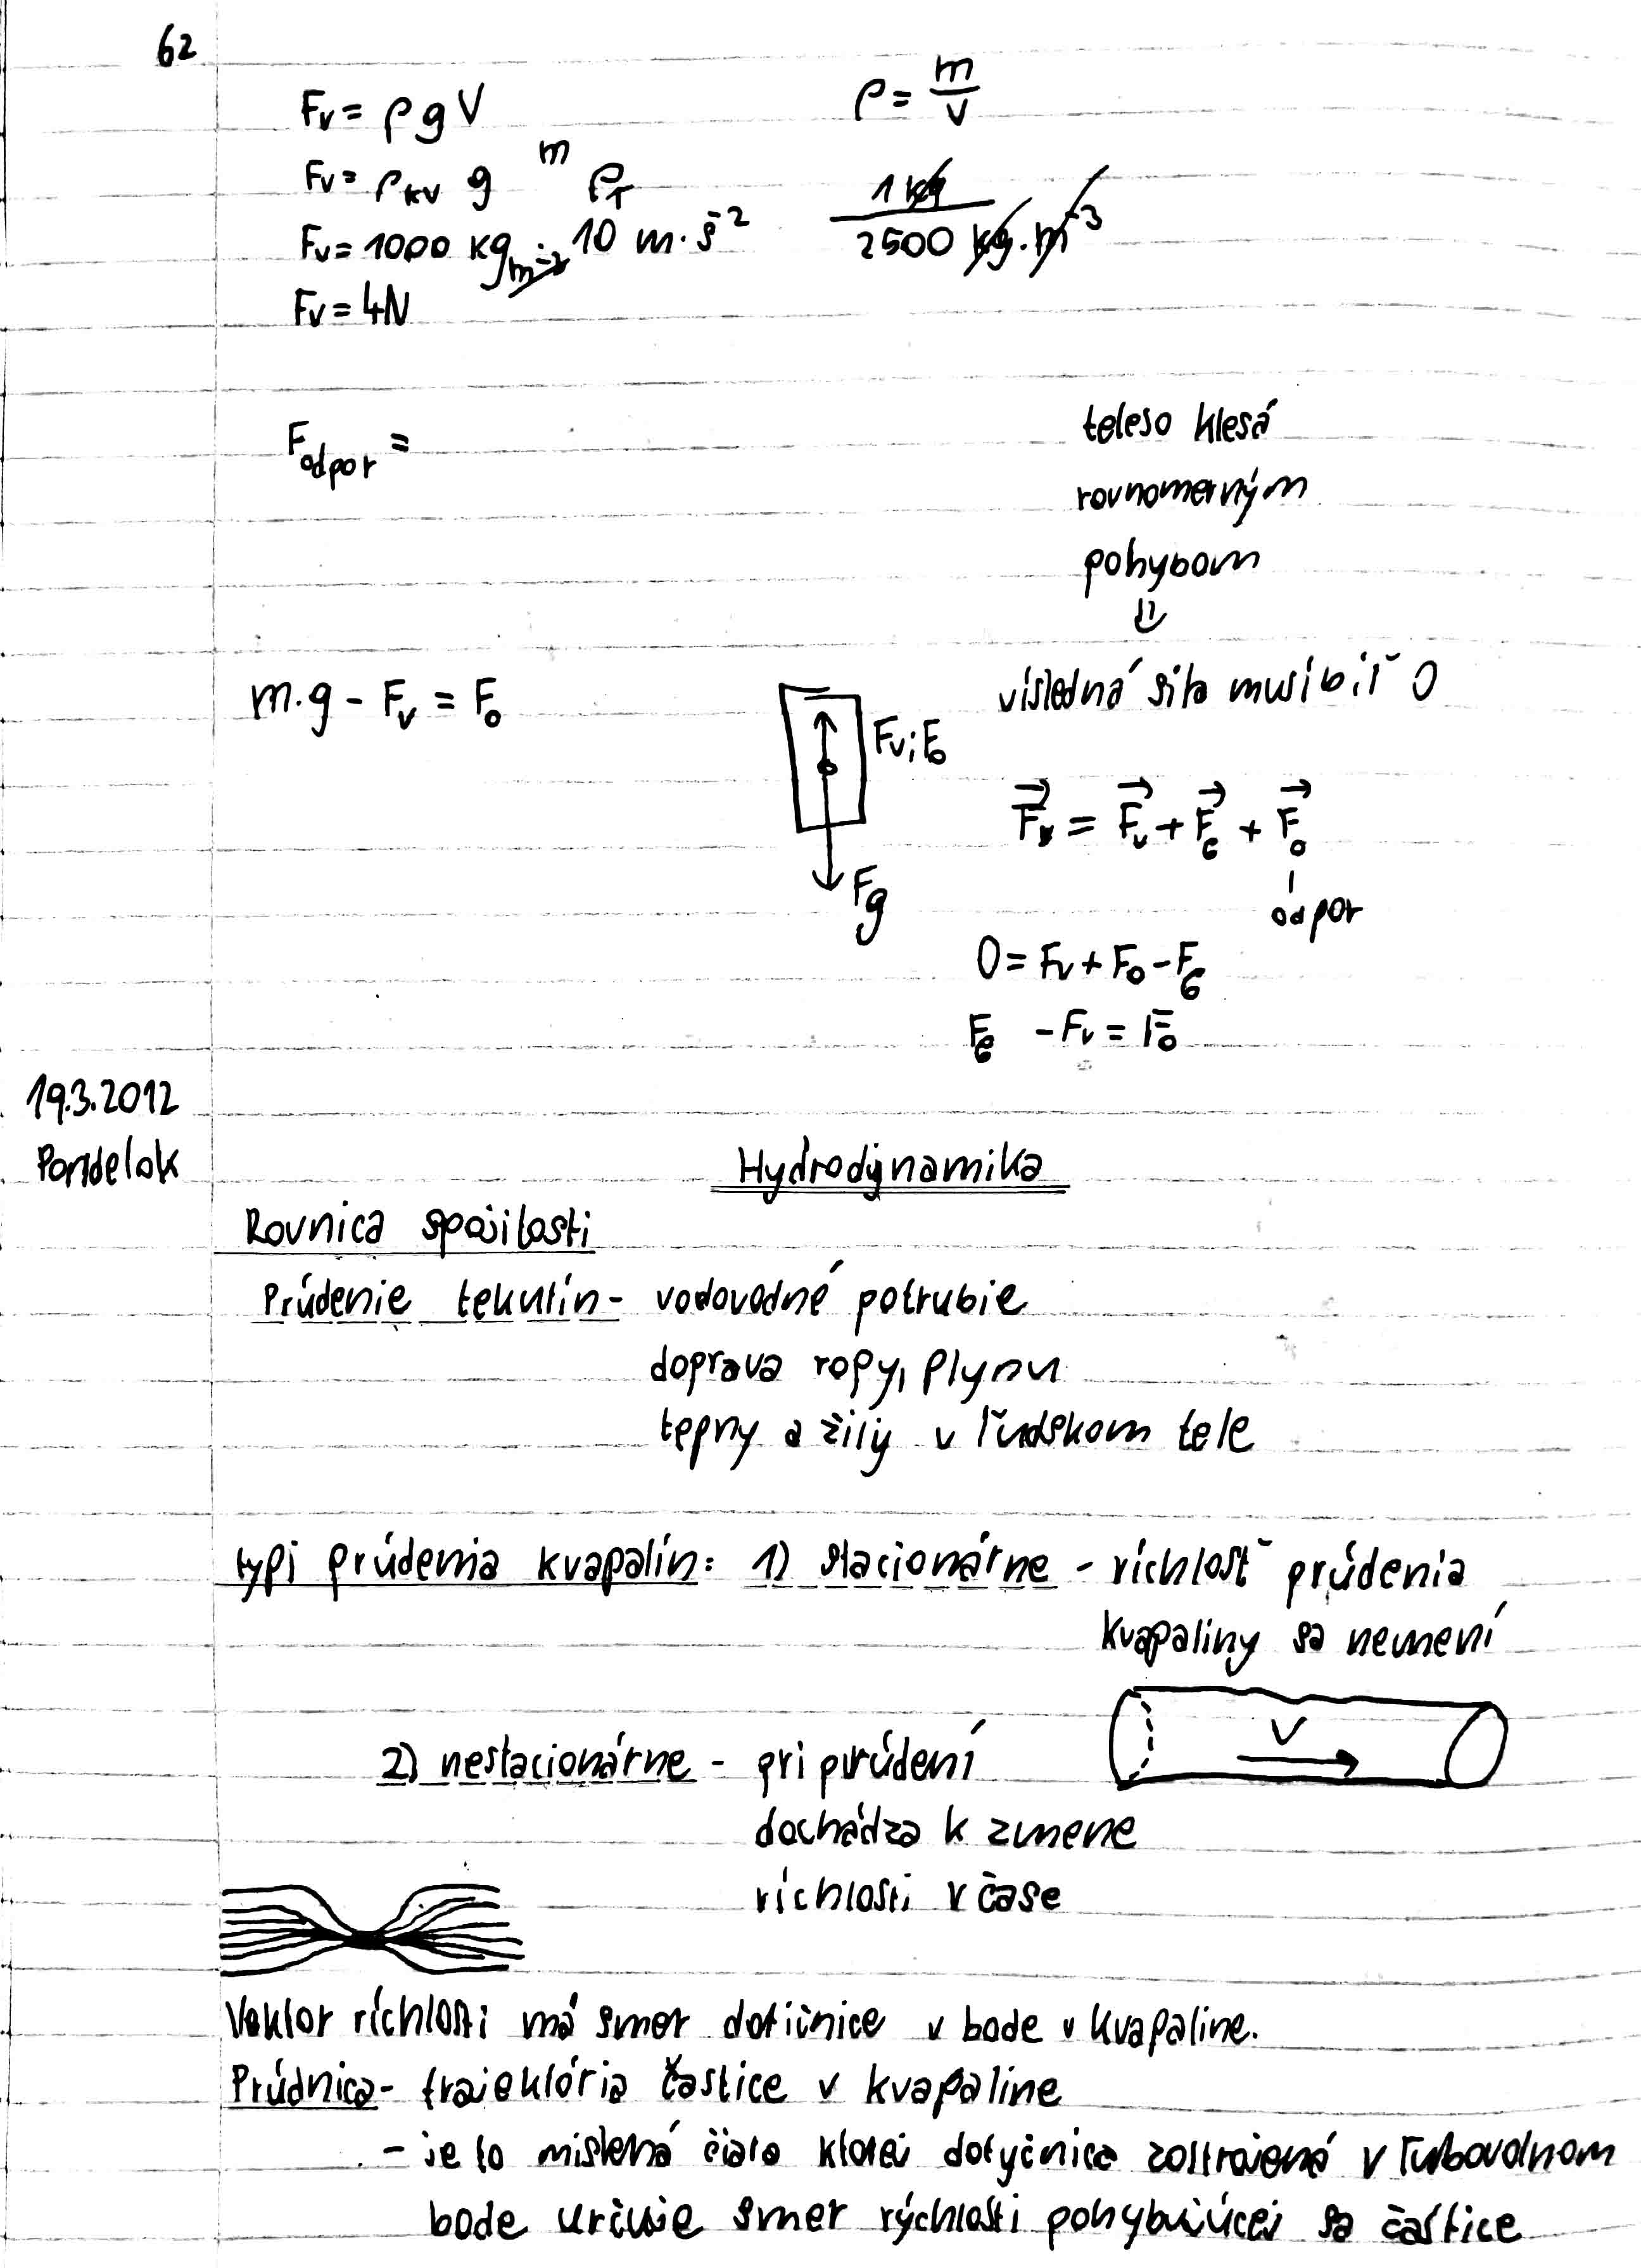 62
Fv = ρ g V
ρ = m/V
Fv = ρkv g m ρT
Fv = 1000 kg m⁻³ 10 m·s⁻² 1 kg / 2500 kg·m⁻³
Fv = 4N
Fodpor =
teleso klesá
rovnomerným
pohybom
⇓
m.g - Fv = Fo
Fv; Fo
Fg
vísledná sila musí biť 0
Fv = Fv + FG + Fo
odpor
0 = Fv + Fo - FG
FG - Fv = Fo
19.3.2012
Pondelok
Hydrodynamika
Rovnica spojitosti
Prúdenie tekutín - vodovodné potrubie
doprava ropy, plynu
tepny a žily v ľudskom tele
typi prúdenia kvapalín: 1) stacionárne - ríchlosť prúdenia
kvapaliny sa nemení
v
2) nestacionárne - pri prúdení
dochádza k zmene
ríchlosti v čase
Vektor ríchlosti má smer dotičnice v bode v kvapaline.
Prúdnica - trajektória častice v kvapaline
- je to mislená čiara ktorej dotyčnica zostrojená v ľubovolnom
bode určuje smer rýchlosti pohybujúcej sa častice